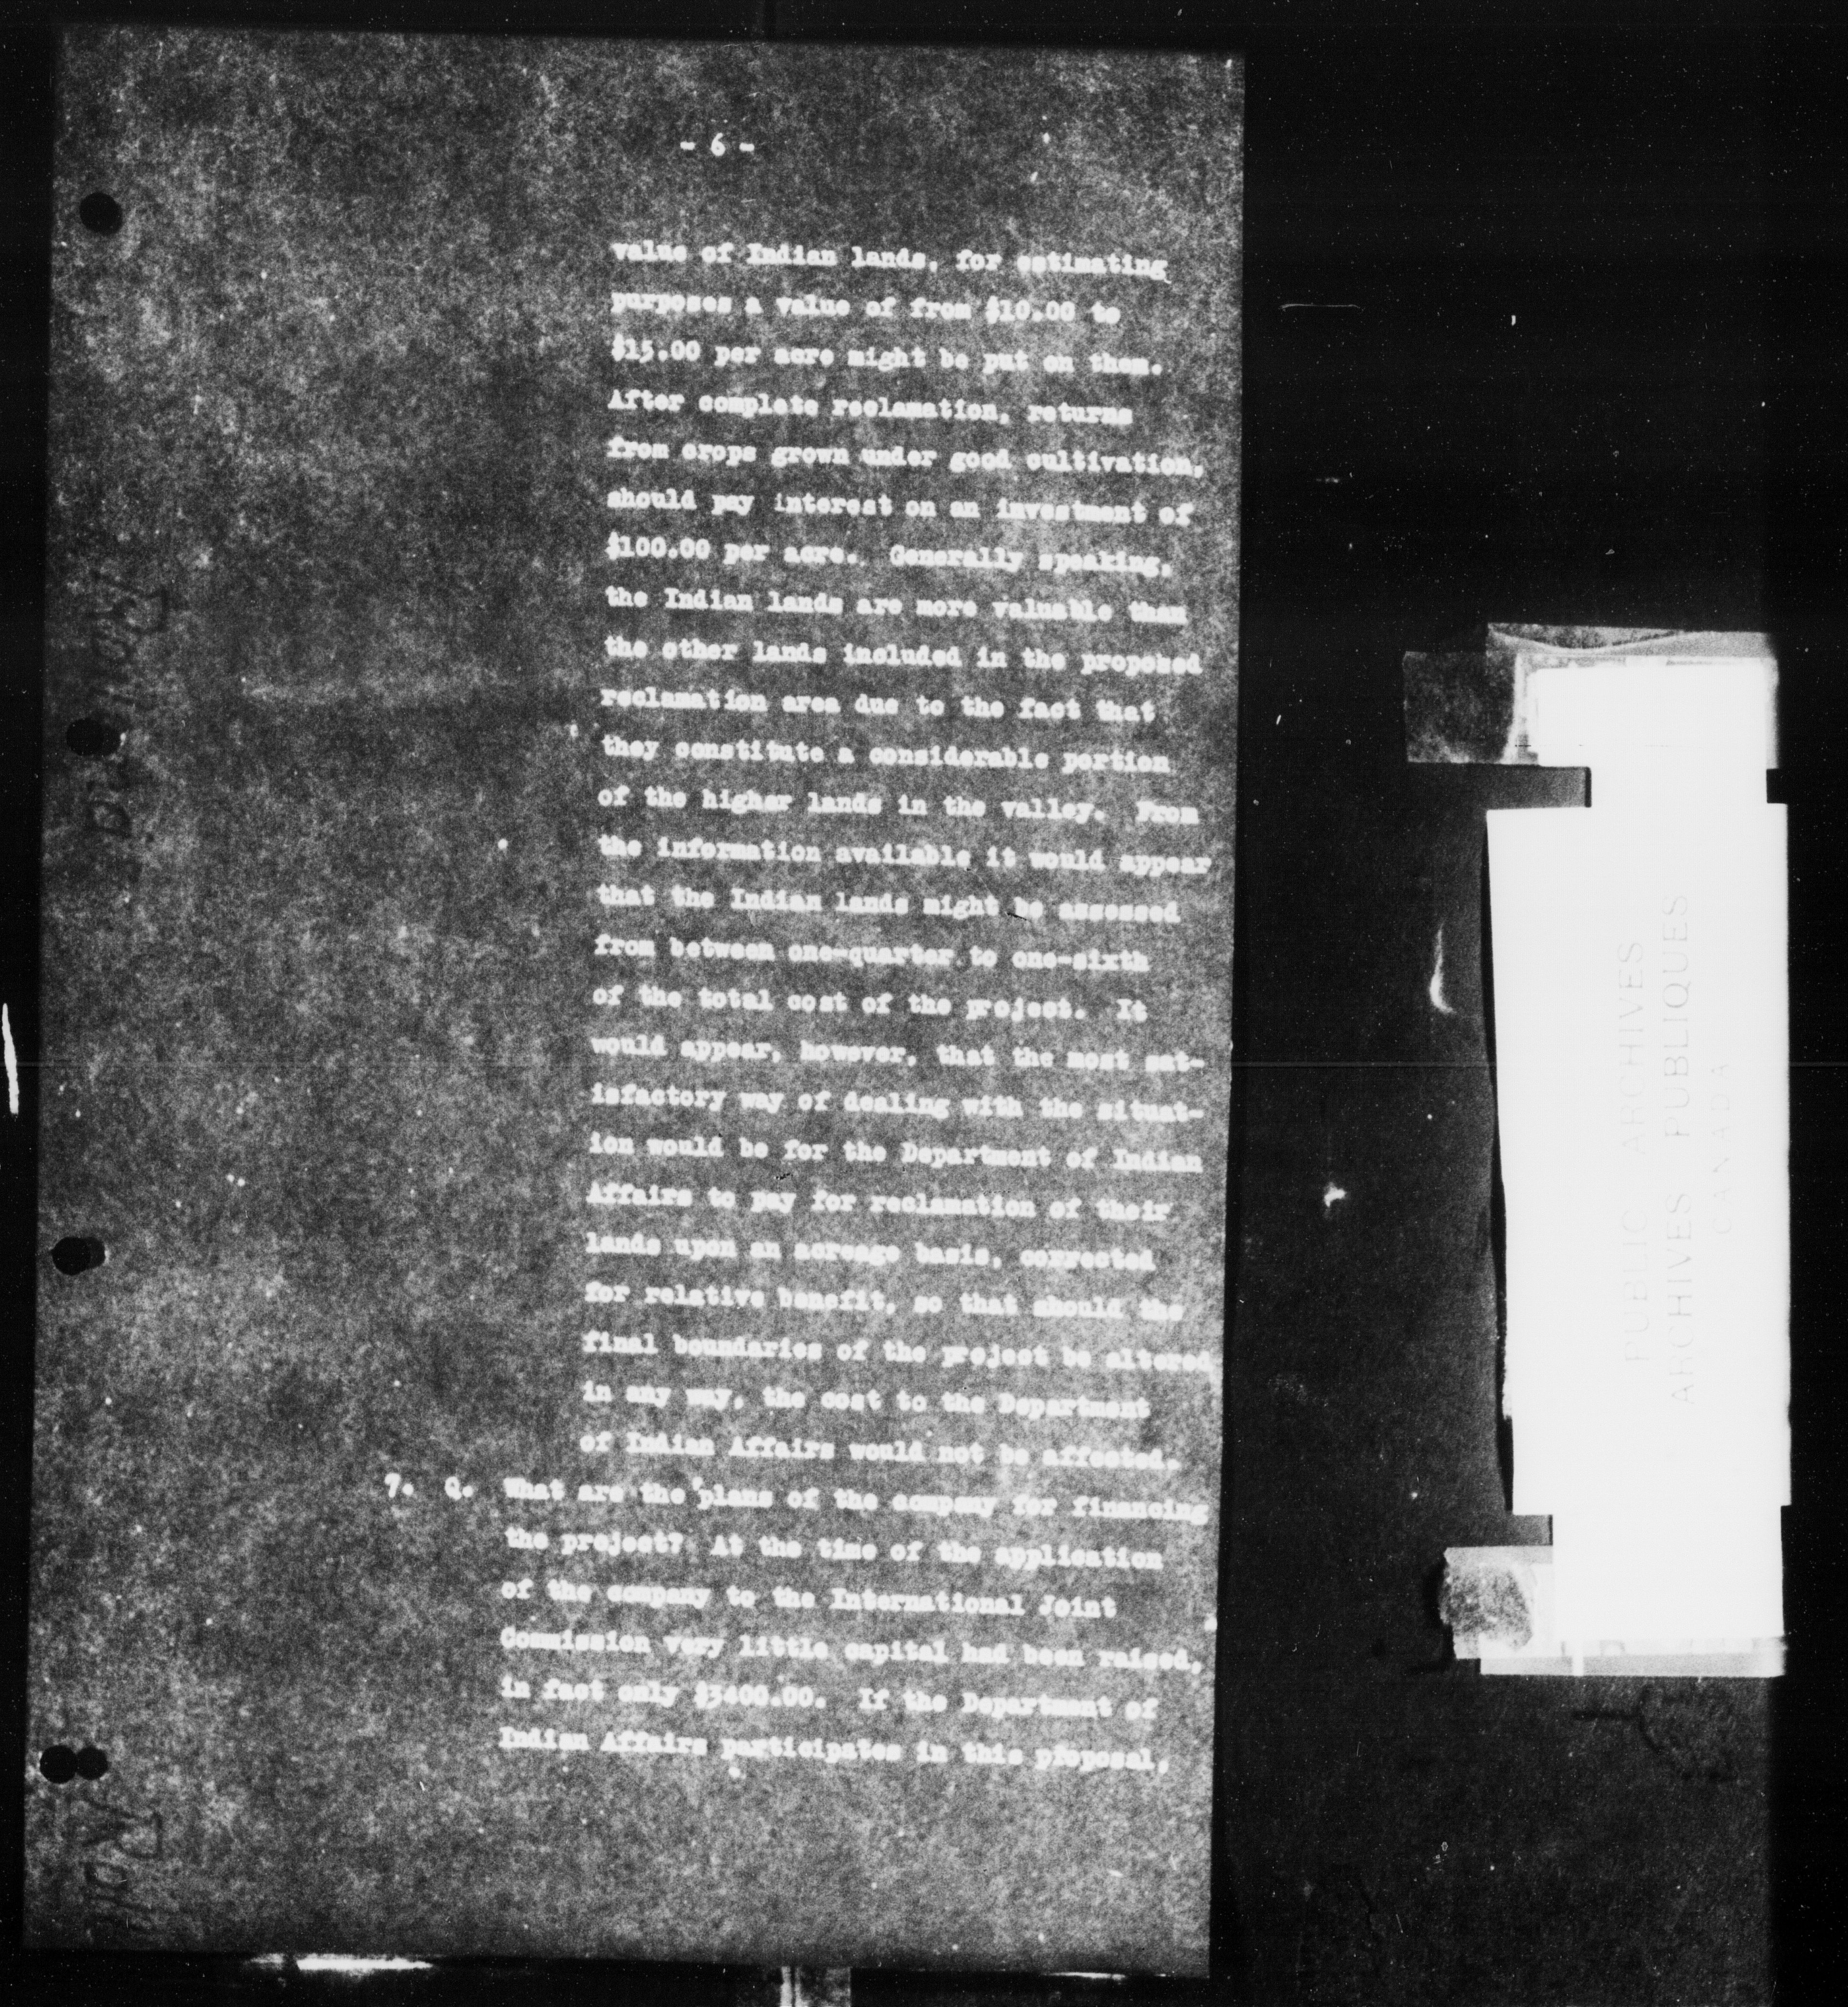 - 6 -
value of Indian lands, for estimating
purposes a value of from $10.00 to
$15.00 per acre might be put on them.
After complete reclamation, returns
from crops grown under good cultivation,
should pay interest on an investment of
$100.00 per acre. Generally speaking,
the Indian lands are more valuable than
the other lands included in the proposed
reclamation area due to the fact that
they constitute a considerable portion
of the higher lands in the valley. From
the information available it would appear
that the Indian lands might be assessed
from between one-quarter to one-sixth
of the total cost of the project. It
would appear, however, that the most sat-
isfactory way of dealing with the situat-
ion would be for the Department of Indian
Affairs to pay for reclamation of their
lands upon an acreage basis, corrected
for relative benefit, so that should the
final boundaries of the project be altered
in any way, the cost to the Department
of Indian Affairs would not be affected.
7. Q. What are the plans of the company for financing
the project? At the time of the application
of the company to the International Joint
Commission very little capital had been raised,
in fact only $3400.00. If the Department of
Indian Affairs participates in this proposal,
PUBLIC ARCHIVES
ARCHIVES PUBLIQUES
CANADA